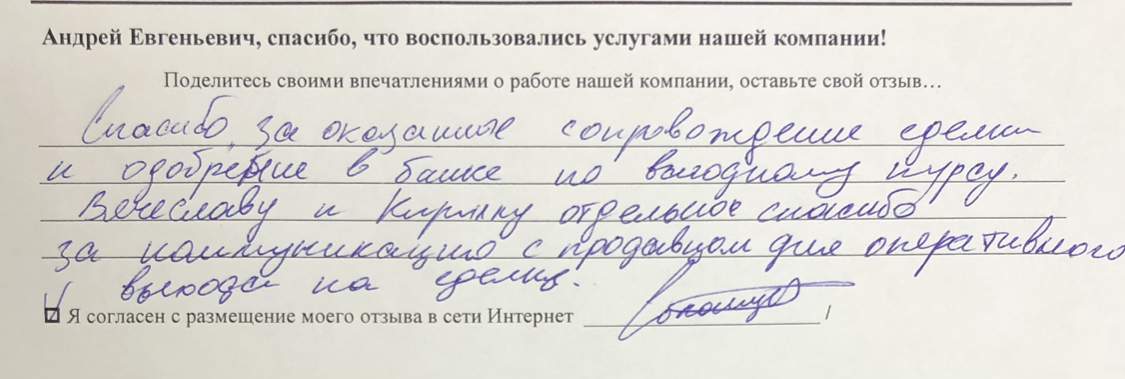 Андрей Евгеньевич, спасибо, что воспользовались услугами нашей компании!
Поделитесь своими впечатлениями о работе нашей компании, оставьте свой отзыв…
Спасибо за оказанные сопровождение сделки
и одобрение в банке по выгодному курсу.
Вечеславу и Кириллу отдельное спасибо
за коммуникацию с продавцом для оперативного
выхода на сделку.
Я согласен с размещение моего отзыва в сети Интернет /